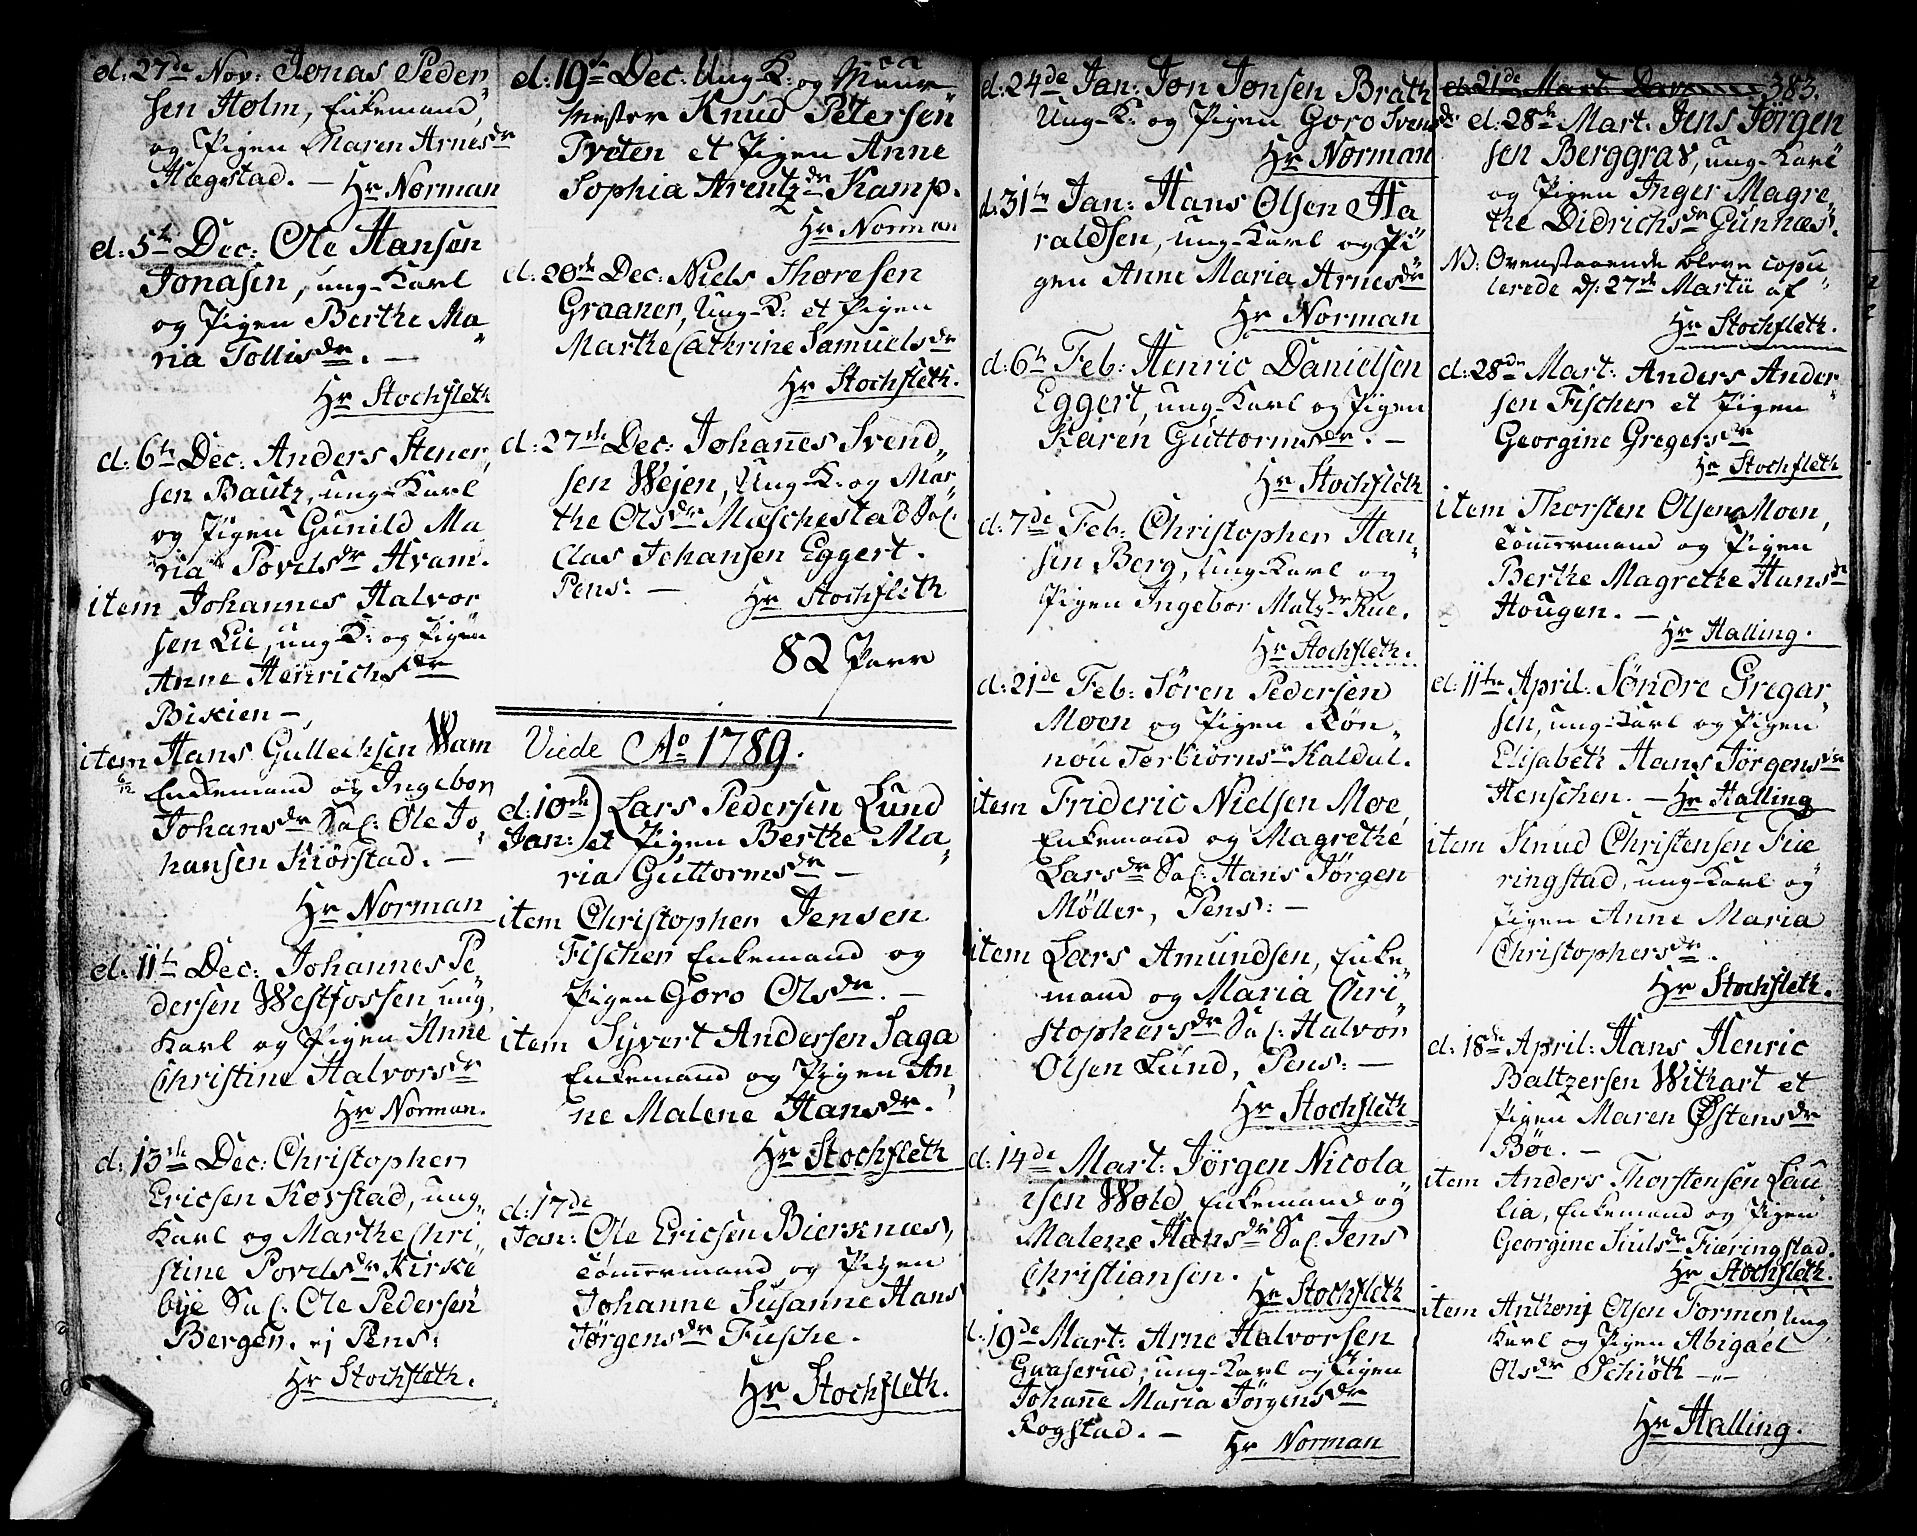 d: 27de Nov: Jonas Peder„
sen Holm, Enkemand,
og Pigen Maren Arnesdr
Hægstad. — Hr Norman
d: 5te Dec: Ole Hansen
Jonasen, ung-Karl
og Pigen Berthe Ma„
ria Tollisdr. —
Hr Stochfleth
d: 6te Dec: Anders Stener„
sen Bautz, ung-Karl
og Pigen Gunild Ma„
ria Povelsdr Hvam.
item Johannes Halvor
sen Lie, ung K: og Pigen
Anne Henrichsdr
Bikien —,
item Hans Gullechsen Wam
Enkemand og Ingebor
Johansdr Sal: Ole Jo„
hansen Kiørstad. —
Hr Norman
d: 11te Dec: Johannes Pe„
dersen Westfossen, ung„
Karl og Pigen Anne
Christine Halvorsdr
Hr Norman.
d: 13de Dec: Christopher
Ericsen Korstad, ung„
Karl og Marthe Chri„
stine Povelsdr Kirke„
bye Sal: Ole Pedersen
Bergen. ej Pens:
Hr Stochfleth.
d: 19de Dec: Ung-K: og Muur„
mester Knud Petersen
Tveten et Pigen Anne
Sophia Arentzdr Kamp.
Hr Norman
d: 20de Dec: Niels Thoresen
Graaner, Ung-K: et Pigen
Marthe Cathrine Samuelsdr
Hr Stochfleth.
d: 27de Dec: Johannes Svend„
sen Wejen, Ung-K: og Mar„
the Olsdr Muschestad Sal:
Clas Johansen Eggert.
Pens: — Hr Stochfleth
82 Parr
Viede Ao 1789.
d: 10de Lars Pedersen Lund
Jan: et Pigen Berthe Ma„
ria Guttormsdr —
item Christopher Jensen
Fischer Enkemand og
Pigen Goro Olsdr. —
item Syvert Andersen Saga
Enkemand og Pigen An„
ne Malene Hansdr.
Hr Stochfleth
d: 17de
Jan: Ole Ericsen Bierknæs,
Tømmermand og Pigen
Johanne Susanne Hans
Jørgensdr Fusche.
Hr Stochfleth.
d: 24de Jan: Jon Jonsen Brath
Ung-K: og Pigen Goro Svensdr
Hr Norman
d: 31te Jan: Hans Olsen Ha
raldsen, ung-Karl og Pi„
gen Anne Maria Arnesdr
Hr Norman
d: 6te Feb: Henric Danielsen
Eggert, ung-Karl og Pigen
Karen Guttormsdr. —
Hr Stochfleth
d: 7de Feb: Christopher Han„
sen Berg, Ung-Karl og
Pigen Ingebor Matzdr Rue.
Hr Stochfleth.
d: 21de Feb: Søren Pedersen
Moen og Pigen Røn„
nou Torbiørnsdr Kaldal.
item Frideric Nielsen Moe,
Enkemand og Magrethe
Larsdr Sal: Hans Jørgen
Møller, Pens: —
item Lars Amundsen, Enke„
mand og Maria Chri„
stophersdr Sal: Halvor
Olsen Lund, Pens: —
Hr Stochfleth
d: 14de Mart: Jørgen Nicola„
isen Wold, Enkemand og
Malene Hansdr Sal: Jens
Christiansen.
Hr Stochfleth
d: 19de Mart: Arne Halvorsen
Graserud, ung-Karl og Pigen
Johanne Maria Jørgensdr
Kogstad. — Hr Norman
d: 21de Mart 383.
d: 28de Mart: Jens Jørgen
sen Berggrav, ung-Karl
og Pigen Inger Magre„
the Didrichsdr Gunnæs.
NB: Ovenstaaende bleve copu„
lerede d: 27de Martii af
Hr Stochfleth.
d: 28de Mart: Anders Ander„
sen Fischer et Pigen
Georgine Gregersdr
Hr Stochfleth
item Thorsten Olsen Moen,
Tømmermand og Pigen
Berthe Magrethe Hansdr
Hougen. —
Hr Halling.
d: 11te April: Søndre Gregar„
sen, ung-Karl og Pigen
Elisabeth Hans Jørgensdr
Henschen. — Hr Halling
item Knud Christensen Fie„
ringstad, ung-Karl og
Pigen Anne Maria
Christophersdr.
Hr Stochfleth.
d: 18de April: Hans Henric
Baltzersen Withart et
Pigen Maren Østensdr
Bøe. —
item Anders Thorstensen Lau„
lia, Enkemand og Pigen
Georgine Siulsdr Fieringstad.
Hr Stochfleth.
item Anthonj Olsen Tormer, ung„
Karl og Pigen Abigael
Olsdr Schiøth —„—
Hr Halling.